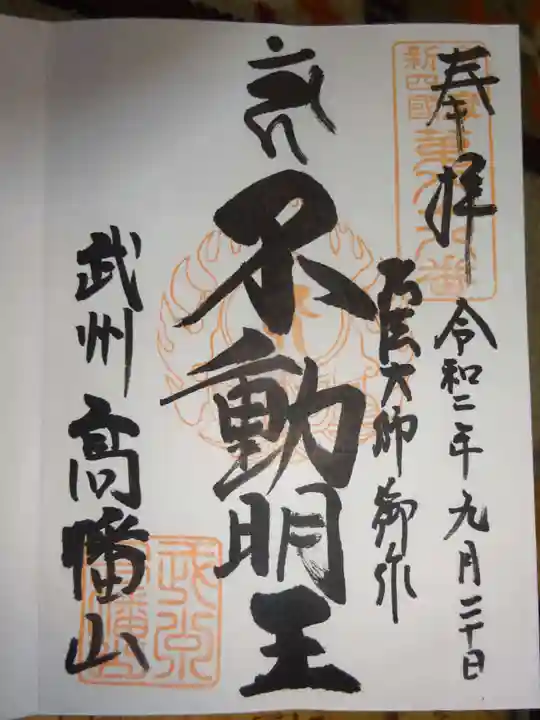 奉拝
令和二年九月二十日
大師御作
不動明王
武州 高幡山
新四國